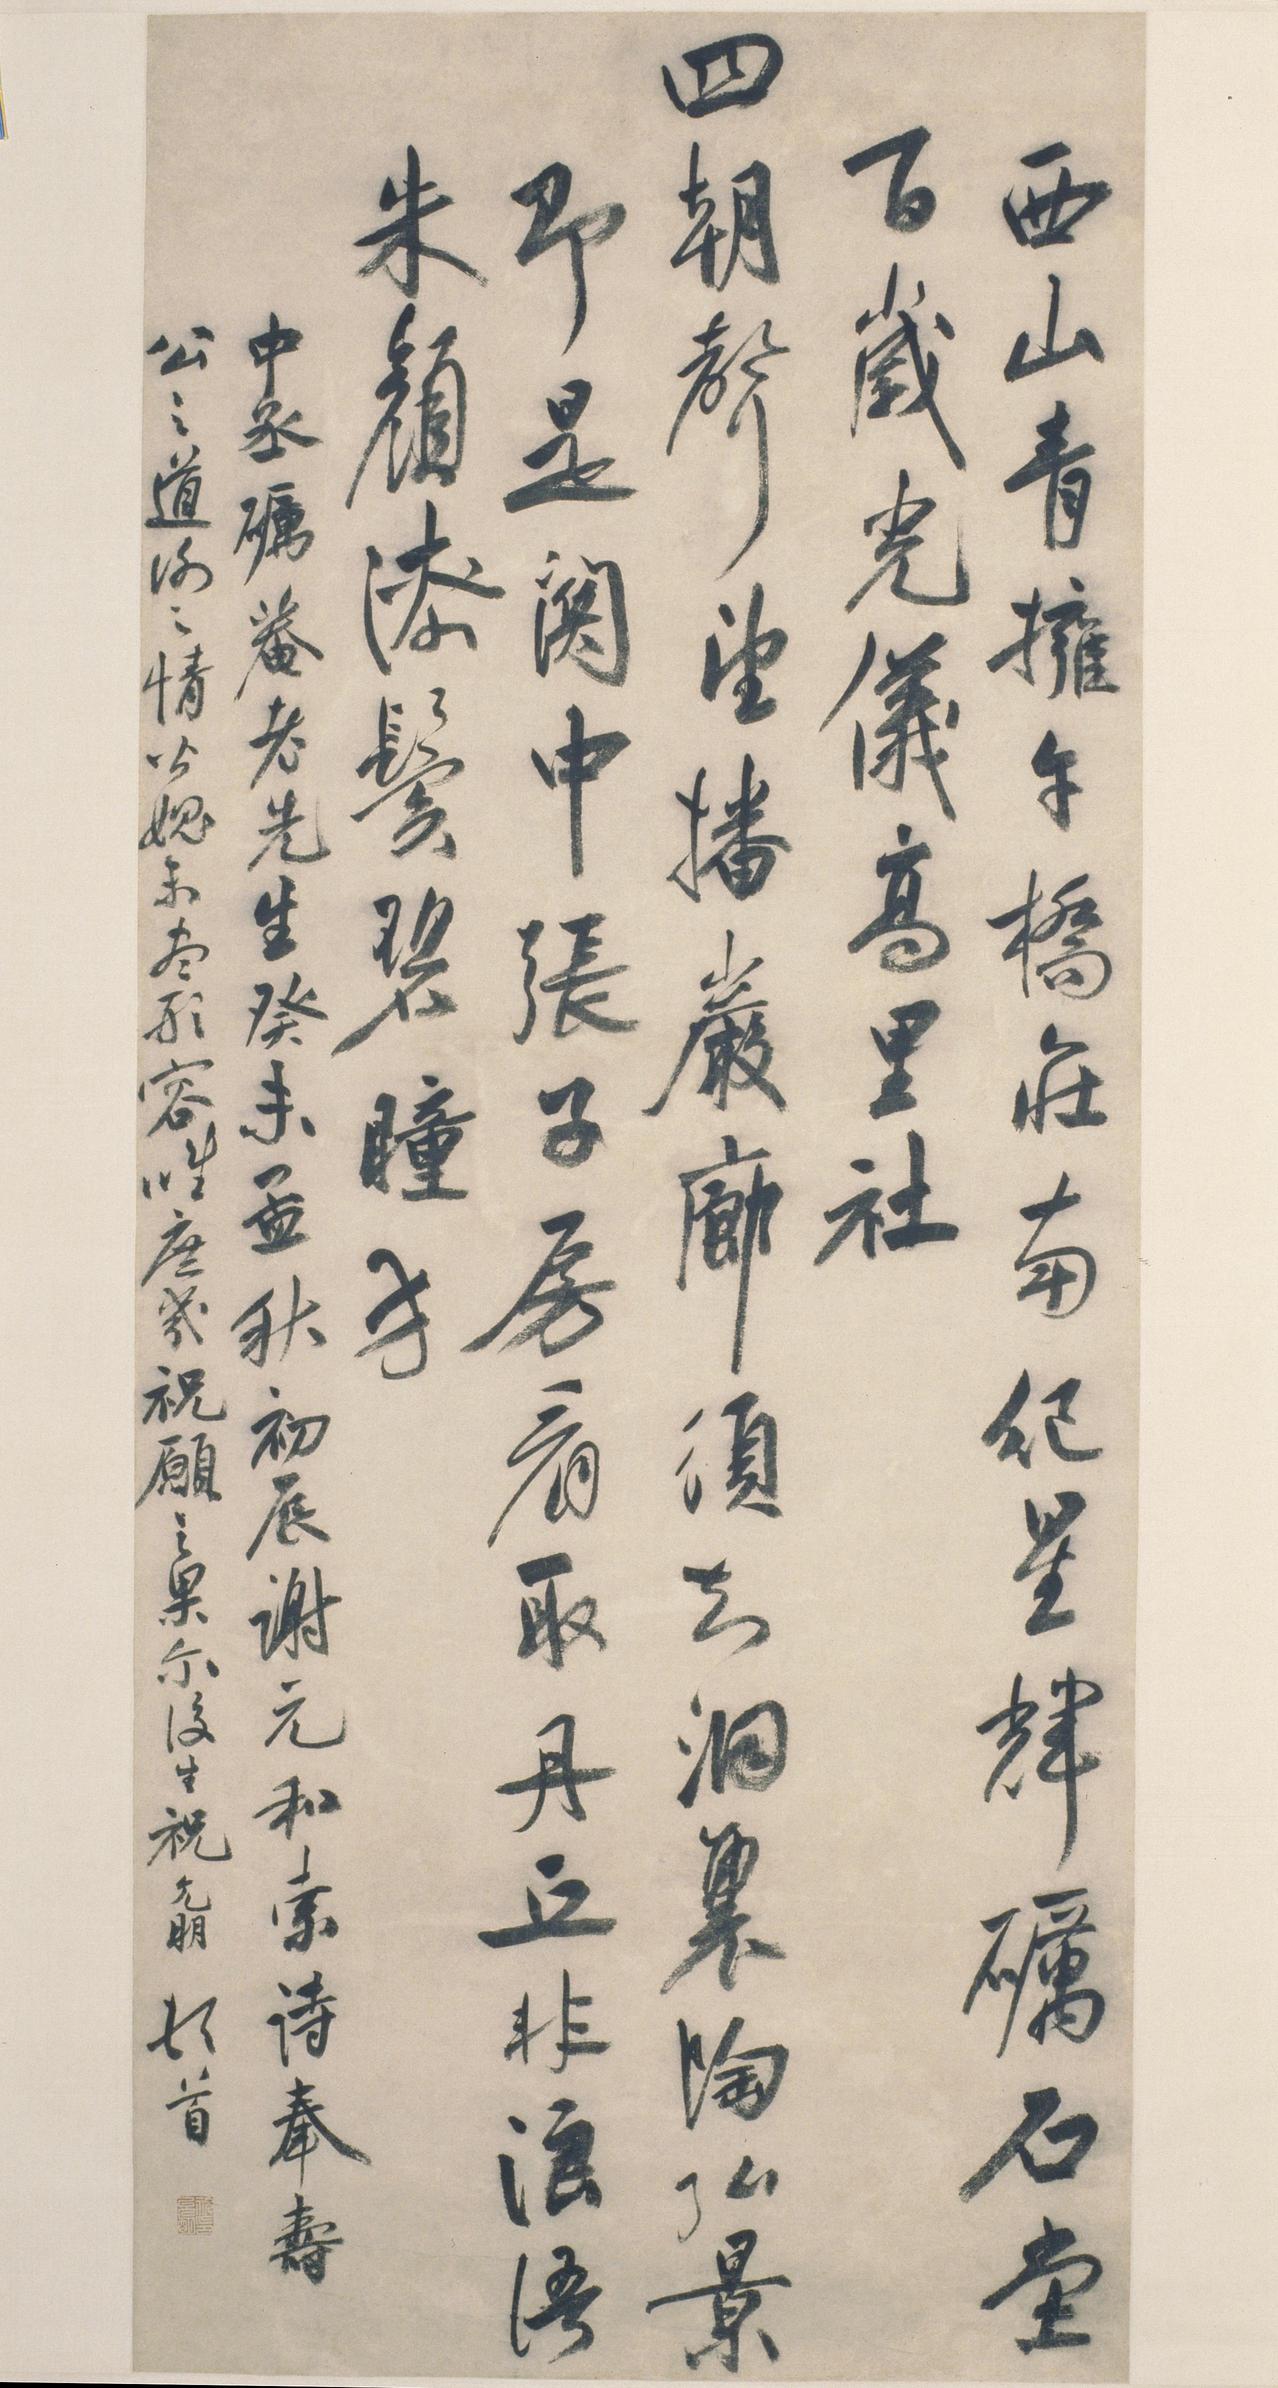 西山青擁午橋莊南紀星輝礪石堂
百歲光儀高里社
四朝聲望播巖廊須知洞裏陶弘景
即是關中張子房看取丹丘非浪語
朱顏漆鬢碧瞳方
中丞礪菴老先生癸未孟秋初辰謝元和索詩奉壽
公之道誼之情以媿未盡形容惟庶幾祝願之果爾後生祝允明頓首